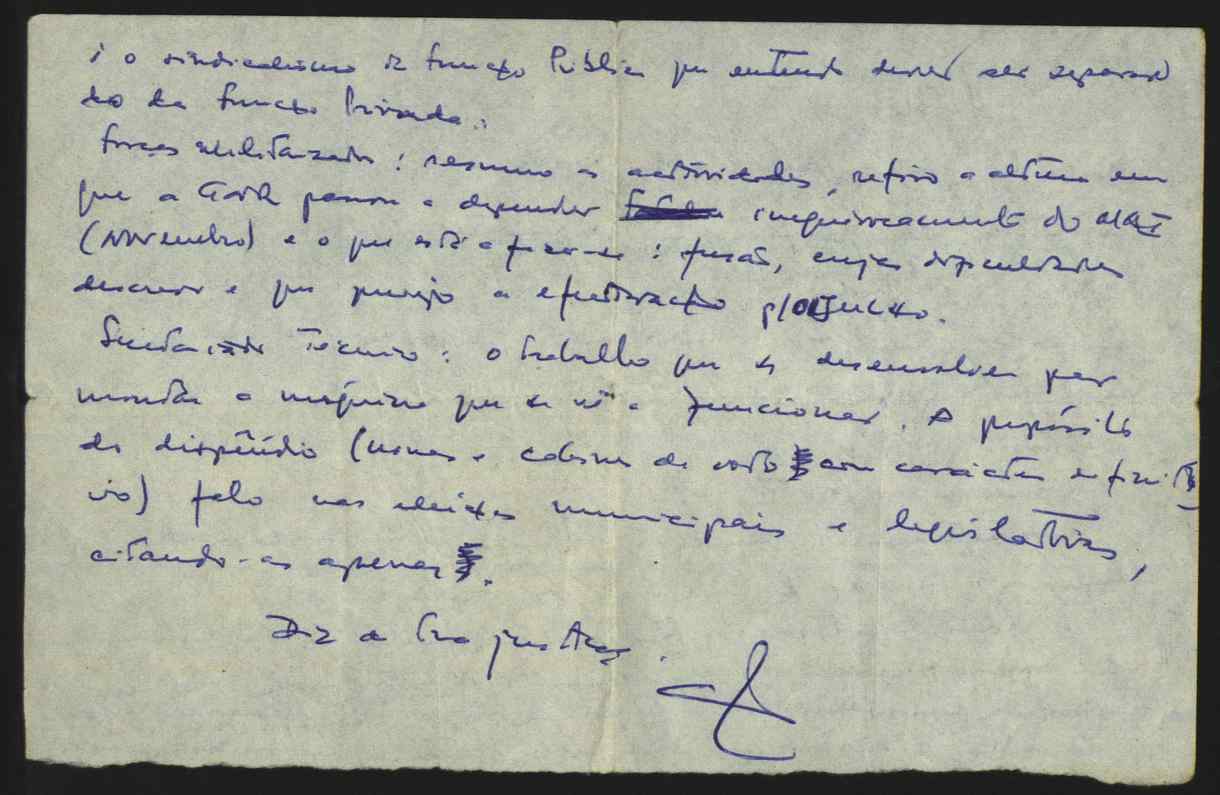 é o sindicalismo da Função Pública que entendo dever ser separado
do da Função Privada.
Forças militarizadas: resumo as actividades, refiro a altura em
que a GNR passou a depender inequivocamente do MAI
(Novembro) e o que está a fazer-se: fusão, cujas dificuldades
descrevo e que a efectivação p/ o Julho.
Secretariado Técnico: o trabalho que se desenvolveu para
montar a máquina que se vê a funcionar. A propósito
do dispêndio (urnas e cabines de voto com carácter definiti
vo) falo nas eleições municipais e legislativas,
citando-as apenas.
Diz a sua justiça.